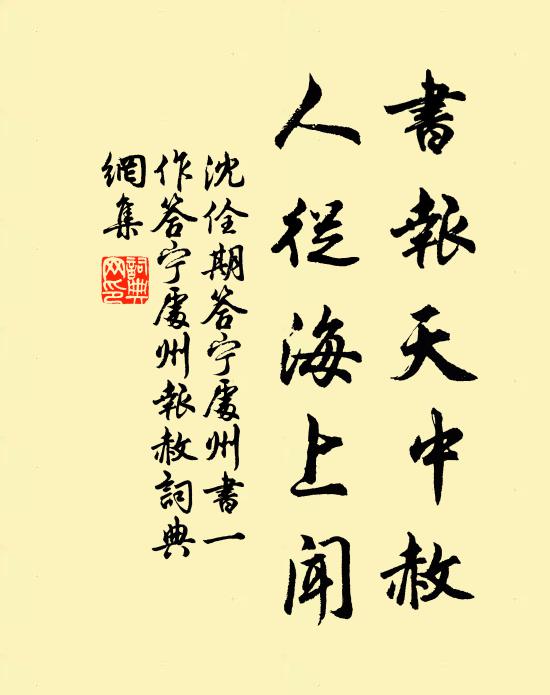 書報天中赦
人從海上聞
沈佺期答宁處州書一
作答宁處州報赦詞典
網集
詞典
網印